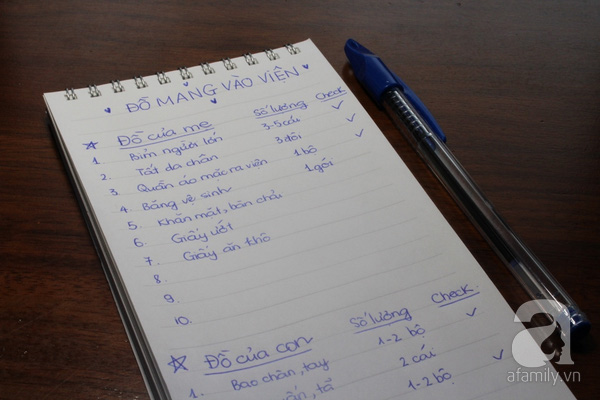 ĐỒ MANG VÀO VIỆN
Đồ của mẹ Số lượng Check
1. Bỉm người lớn 3-5 cái ✓
2. Tất da chân 3 đôi ✓
3. Quần áo mặc ra viện 1 bộ ✓
4. Băng vệ sinh 1 gói
5. Khăn mặt, bàn chải
6. Giấy ướt
7. Giấy ăn khô
8.
9.
10.
Đồ của con Số lượng Check
1. Bao chân, tay 1-2 bộ ✓
2 cái ✓
1-2 bộ ✓
a
afamily.vn